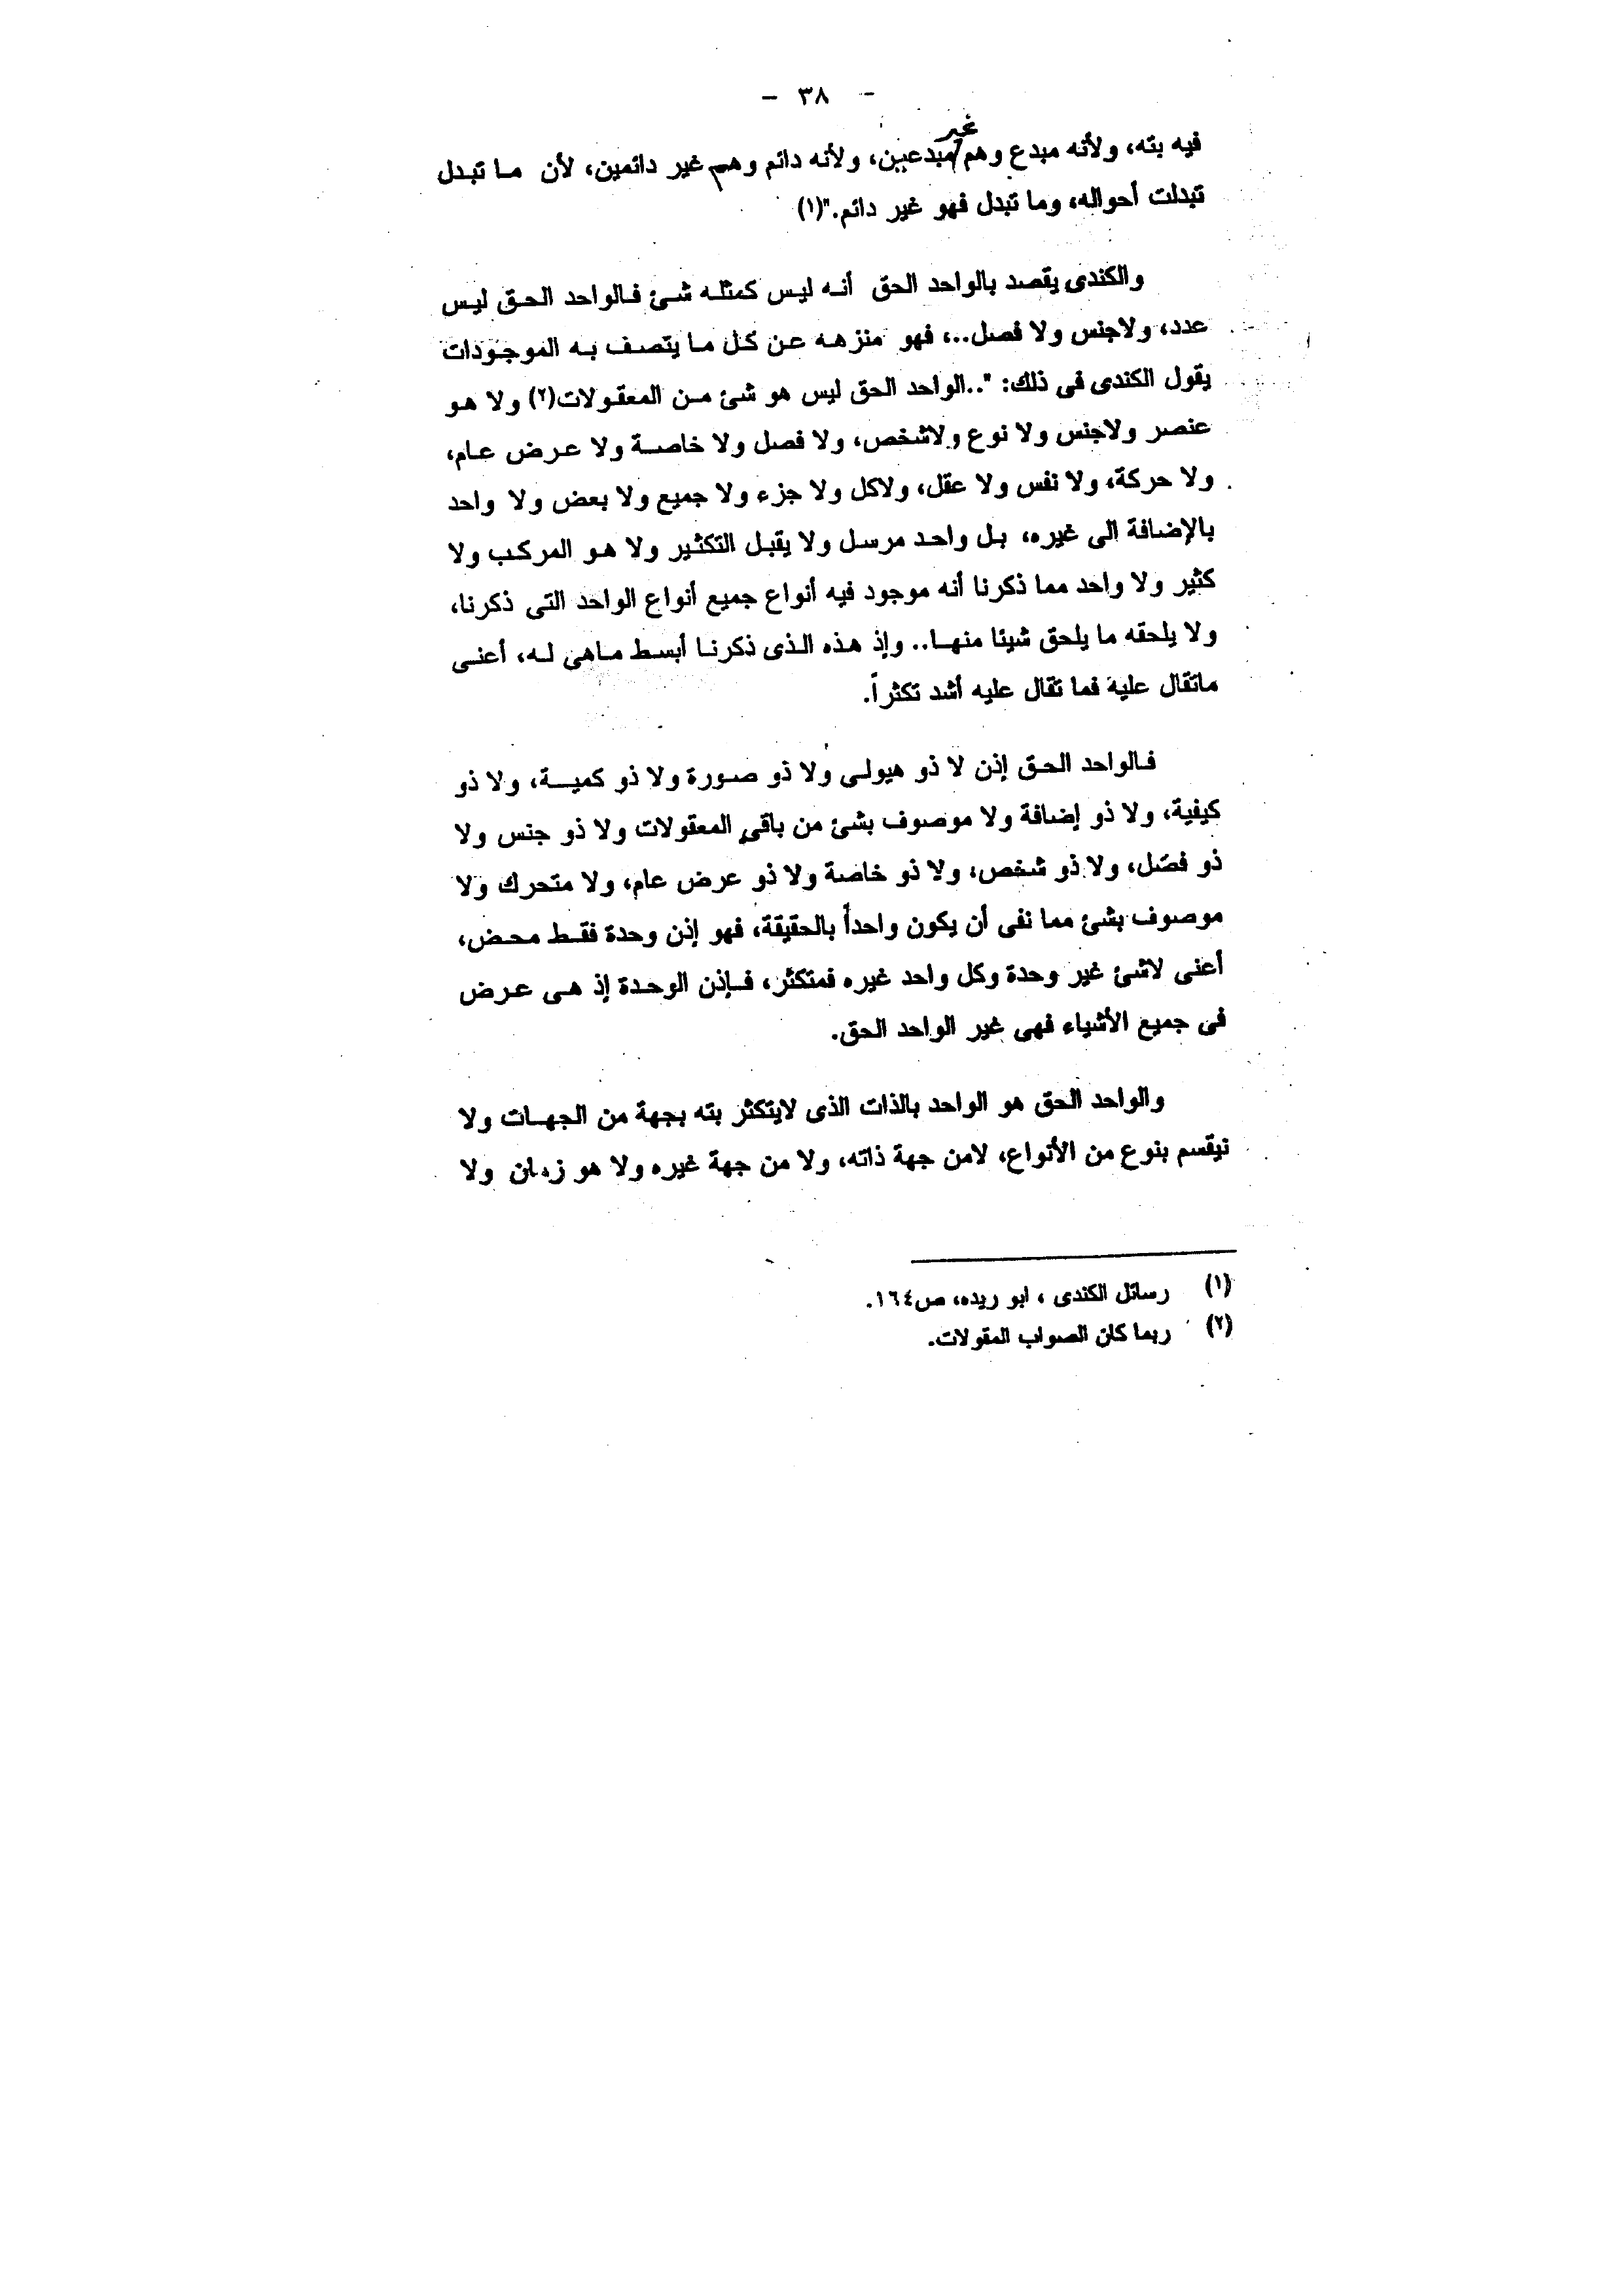 - ٣٨ -
فيه بته، ولأنه مبدع وهم غير مبدعين، ولأنه دائم وهم غير دائمين، لأن ما تبدل
تبدلت أحواله، وما تبدل فهو غير دائم."(١)
والكندى يقصد بالواحد الحق أنه ليس كمثله شئ فالواحد الحق ليس
عدد، ولاجنس ولا فصل..، فهو منزهه عن كل ما يتصف به الموجودات
يقول الكندى فى ذلك: "..الواحد الحق ليس هو شئ من المعقولات(٢) ولا هو
عنصر ولاجنس ولا نوع ولاشخص، ولا فصل ولا خاصة ولا عرض عام،
ولا حركة، ولا نفس ولا عقل، ولاكل ولا جزء ولا جميع ولا بعض ولا واحد
بالإضافة الى غيره، بل واحد مرسل ولا يقبل التكثير ولا هو المركب ولا
كثير ولا واحد مما ذكرنا أنه موجود فيه أنواع جميع أنواع الواحد التى ذكرنا،
ولا يلحقه ما يلحق شيئا منها.. وإذ هذه الذى ذكرنا أبسط ماهى له، أعنى
ماتقال عليه فما تقال عليه أشد تكثراً.
فالواحد الحق إذن لا ذو هيولى ولا ذو صورة ولا ذو كمية، ولا ذو
كيفية، ولا ذو إضافة ولا موصوف بشئ من باقى المعقولات ولا ذو جنس ولا
ذو فصل، ولا ذو شخص، ولا ذو خاصة ولا ذو عرض عام، ولا متحرك ولا
موصوف بشئ مما نفى أن يكون واحداً بالحقيقة، فهو إذن وحدة فقط محض،
أعنى لاشئ غير وحدة وكل واحد غيره فمتكثر، فإذن الوحدة إذ هى عرض
فى جميع الأشياء فهى غير الواحد الحق.
والواحد الحق هو الواحد بالذات الذى لايتكثر بته بجهة من الجهات ولا
نيقسم بنوع من الأنواع، لامن جهة ذاته، ولا من جهة غيره ولا هو زمان ولا
(١) رسائل الكندى ، ابو ريده، ص١٦٤.
(٢) ربما كان الصواب المقولات.